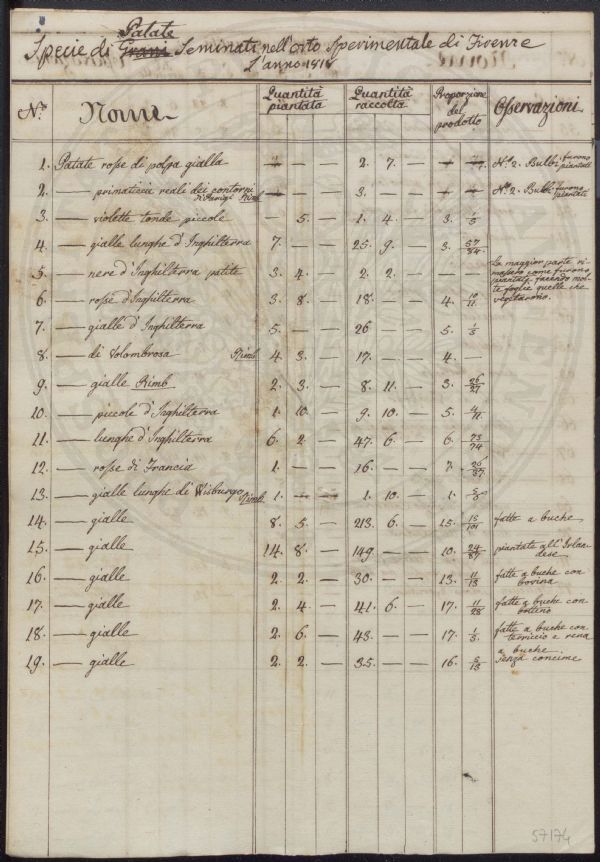 Patate
Specie di Grani Seminati nell'orto Sperimentale di Firenze
L'anno 181
N.º Nomi Quantità piantata Quantità raccolta Proporzione del prodotto Osservazioni
1. Patate rosse di polpa gialla — — — 2. 7. — — N.º 2. Bulbi furono piantati
2. — primaticcie reali dei contorni di Parigi Rimb — — — 3. — — — — N.º 2. Bulbi furono piantati
3. — violette tonde piccole — 5. — 1. 4. — 3. 1/5
4. — gialle lunghe d'Inghilterra 7. — — 25. 9. — 3. 57/84
5. — nere d'Inghilterra patite 3. 4. — 2. 2. — — — La maggior parte rimassero come furono piantate facendo molte foglie quelle che vegetarono.
6. — rosse d'Inghilterra 3. 8. — 18. — — 4. 10/11
7. — gialle d'Inghilterra 5. — — 26 — — 5. 1/5
8. — di Volombrosa Rimb 4. 3. — 17. — — 4. —
9. — gialle Rimb 2. 3. — 8. 11. — 3. 26/27
10. — piccole d'Inghilterra 1. 10. — 9. 10. — 5. 4/11
11. — lunghe d'Inghilterra 6. 2. — 47. 6. — 6. 73/74
12. — rosse di Francia 1. — — 16. — — 7.
13. — gialle lunghe di Wisburgo Rimb 1. — — 1. 10. — 1.
14. — gialle 8. 5. — 213. 6. — 15. fatte a buche
15. — gialle 14. 8. — 149. — — 10. piantate all'Irlandese
16. — gialle 2. 2. — 30. — — 13. 11/13 fatte a buche con bovina
17. — gialle 2. 4. — 41. 6. — 17. 11/28 fatte a buche con
18. — gialle 2. 6. — 43. — — 17. 1/5 fatte a buche con terriccio e rena
19. — gialle 2. 2. — 35. — — 16. a buche senza concime
57174